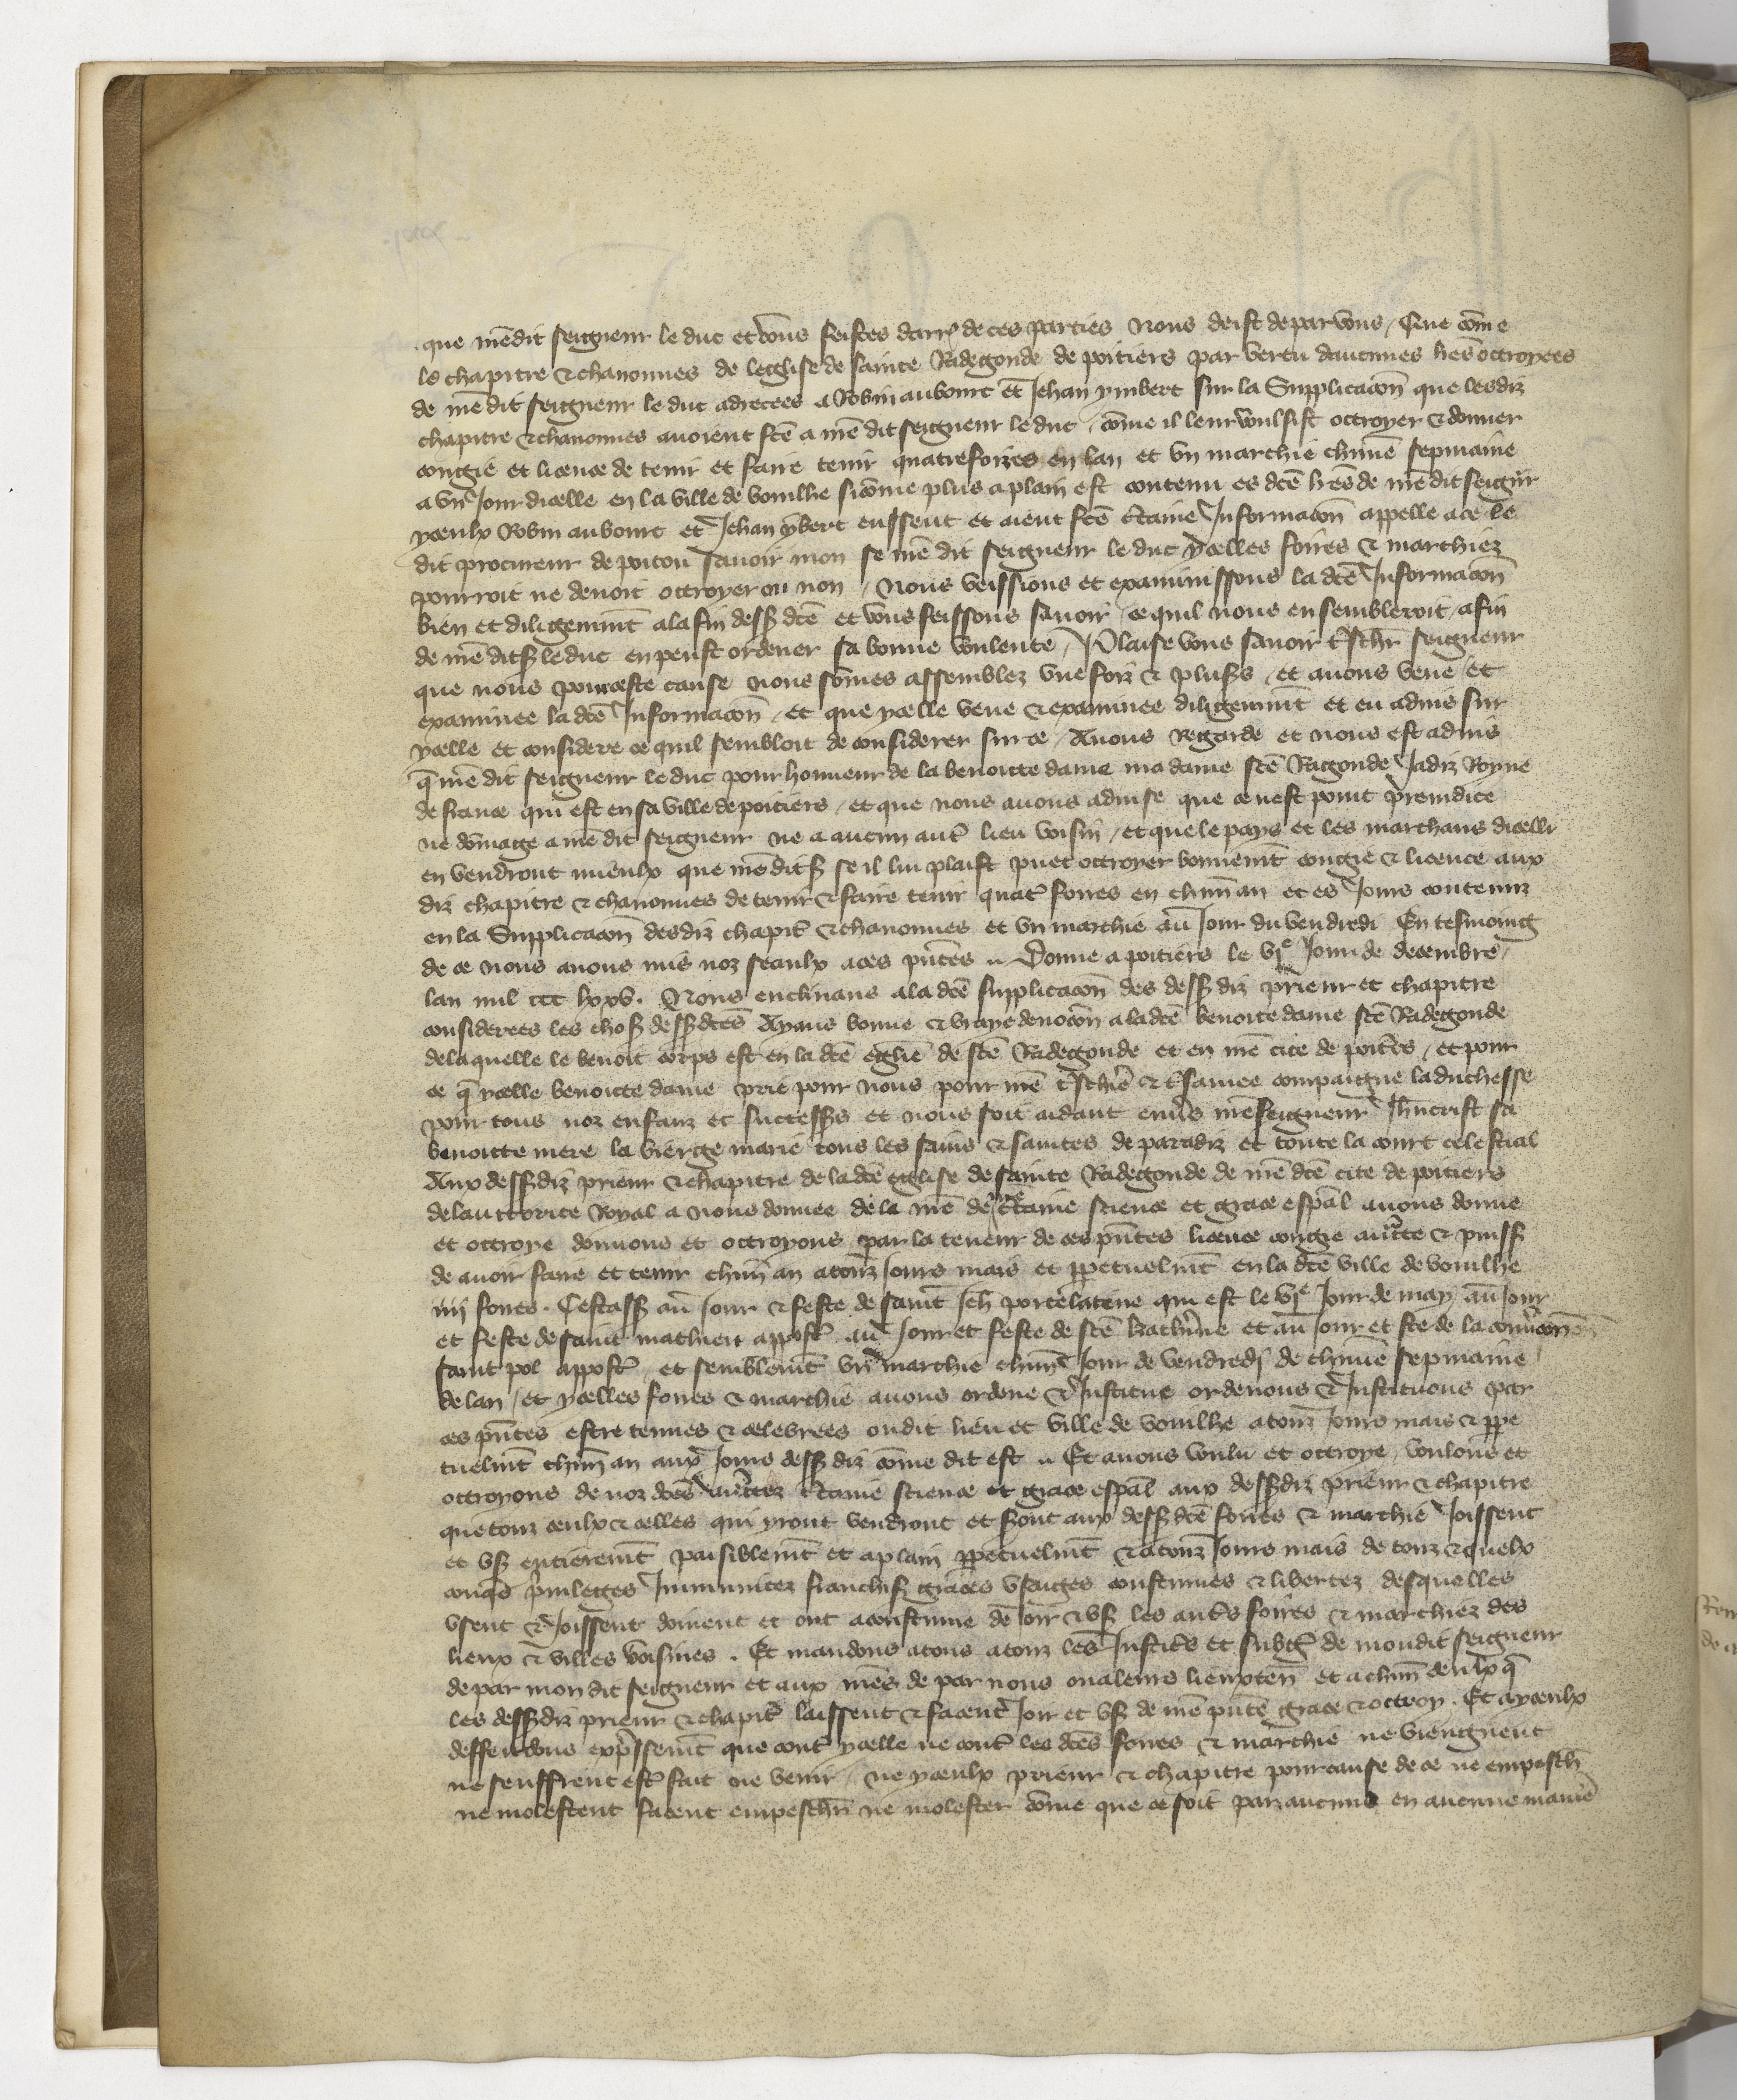 que mēdit seigneur le duc et vous feistes darr̄ de ces parties Nous deist de par vous / Que cōme
le chapitre & chanonnes de leglise de sainte Radegonde de poitiers par vertu daucunes lr̄es octroyees
de mē dit seigneur le duc adrecees a Robin aubouit et Jehan ymbert sur la Supplicacōn que lesdiz
chapitre & chanonnes auoient fc̄e a mē dit seigneur le duc / cōme il leur voulsist octroyer & donner
congie et licence de tenir et faire tenir quatre foires en lan et vn marchie chūne sepmaine
a vn Jour dicelle en la ville de vouilhe sicōme plus a plain est contenu es dc̄es lr̄es de mē dit seigūr
yceulx Robin aubouit et Jehan ȳbert eussent et aient fc̄e c̄taine Informacōn appelle a ce le
dit procureur de poitou sauoir mon se mē dit seigneur le duc ycelles foires & marchiez
pourroit ne deuoit octroyer ou non / Nous veissions et examinissons la dc̄e Informacōn
bien et diligemm̄t a la fin dess̄ dc̄e et vous feissons sauoir / ce quil nous en sembleroit / afin
de mē dit s̄ le duc en peust ordener sa bonne voulente / Plaise vous sauoir t̄scħr seigneur
que nous pour ceste cause nous sōmes assemblez vne foiz & plus̄s / et auons veue et
examinee la dc̄e Informacōn / et que ycelle veue & examinee diligemm̄t et eu aduis sur
ycelle et considere ce quil sembloit de considerer sur ce / Auons Regarde et nous est aduis
q̄ mē dit seigneur le duc pour honneur de la benoitte dame ma dame sc̄e Ragonde Jadiz Royne
de france qui est en sa ville de poitiers / et que nous auons aduise que ce nest point preiudice
ne dōmage a mē dit seigneur ne a aucun aut̄ lieu voisin / et que le pays et les marchans dicelli
en vendront mieulx que mē dit s̄ se il lui plaist puet octroyer bonnemēt congie & licence aux
diz chapitre & chanonnes de tenir & faire tenir quat̄ foires en chūn an et es Jours contenuz
en la Supplicacōn desdiz chapit̄ & chanonnes et vn marchie au Jour du vendredi En tesmoing
de ce nous auons mis noz seaulx a ces pn̄tes // Donne a poitiers le vjᵉ Jour de decembre /
lan mil ccc lxxv. Nous enclinans a la dc̄e supplicacōn des dess̄ diz prieur et chapitre
considerees les chos̄ dess̄ dc̄es Ayans bonne & vraye deuocōn a la dc̄e benoite dame sc̄e Radegonde
de laquelle le benoit corps est en la dc̄e eglīe de sc̄e Radegonde et en mē cite de poit̄es / et pour
ce q̄ ycelle benoitte dame prie pour nous pour mē t̄scħiē & t̄samee compaigne la duchesse
pour tous noz enfanz et success̄s et nous soit aidant enūs mēseigneur Jħucrist sa
benoitte mere la vierge marie tous les sains & saintes de paradiz et toute la court celestial
Aux dess̄ diz prieur & chapitre de la dc̄e eglise de sainte Radegonde de mē dc̄e cite de poitiers
de lauctorite Royal a nous donnee de la mē de nrē c̄taine science et grace esp̄al auons donne
et octroye donnons et octroyons par la teneur de ces pn̄tes licence congie auctte & puiss̄
de auoir faire et tenir chūn an a touz Jours mais et ppetuelmēt en la dc̄e ville de vouilhe
iiij foires. Cestass̄ au Jour & feste de saint Jeh̄ porte latine qui est le vjᵉ Jour de may au Jour
et feste de saint mathieu appost̄ au Jour et feste de sc̄e katherine et au Jour et fste de la conūsion
saint pol appost̄ / et semblemēt vn marchie chūn Jour de vendredj de chūne sepmaine
de lan / et ycelles foires & marchie auons ordene & Institue ordenons & Instituons par
ces pn̄tes estre tenues & celebrees oudit lieu et ville de vouilhe a touz Jours mais & ppe
tuelmēt chūn an aux Jours dess̄ diz cōme dit est // Et auons voulu et octroye / voulons et
octroyons de noz dc̄es auc̄tez c̄taine science et grace esp̄al aux dess̄ diz prieur & chapitre
que touz ceulx & celles qui yront vendront et s̄ont aux dess̄ dc̄e foires & marchie Joissent
et vs̄ entieremēt paisiblemēt et a plain ppetuelmēt & a touz Jours mais de touz & quelx
conq̄s priuileges Immunitez franchis̄ graces vsaiges coustumes & libertez desquelles
vsent & Joissent doiuent et ont acoustume de Joir & vs̄ les aut̄s foires & marchiez des
lieux & villes voisines. Et mandons a tous a touz les Justic̄s et subgt̄ de mondit seigneur
de par mondit seigneur et aux mēs de par nous ou a leurs lieuxten̄ et a chūn deulx q̄
les dess̄ diz prieur & chapit̄ laissent & facent Joir et vs̄ de mē pn̄te grace & octroy. Et a yceulx
deffendons exp̄ssemēt que cont̄ ycelle ne cont̄ les dc̄es foires & marchie ne viengnent
ne seuffrent est̄ fait ne venir / ne yceulx prieur & chapitre pour cause de ce ne empescħ
ne molestent facent empescħr ne molester cōme que ce soit par aucuns en aucune maniē